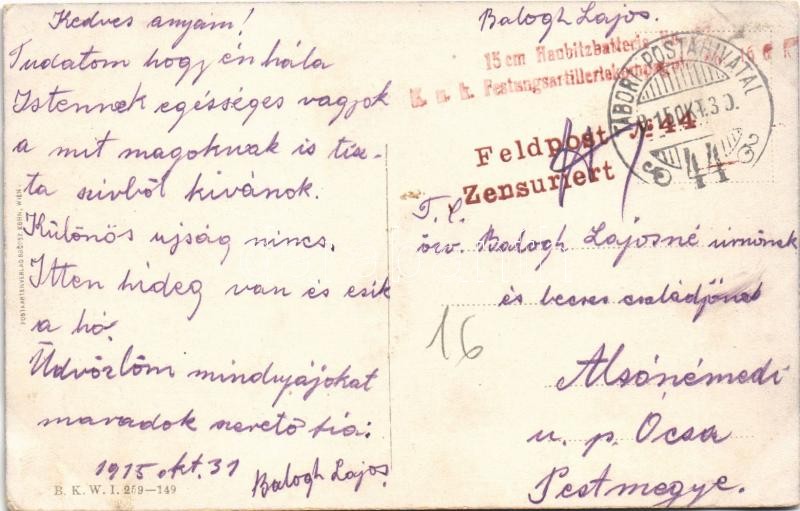 Kedves anyám!
Tudatom hogy én hála
Istennek egésséges vagyok
a mit magoknak is tisz-
ta szivből kivánok.
Különös ujság nincs.
Itten hideg van és esik
a hó.
Üdvözlöm mindnyájokat
maradok szerető fia:
1915 okt. 31
Balogh Lajos.
B. K. W. I. 259—149
POSTKARTENVERLAG BRÜDER KOHN, WIEN.
Balogh Lajos.
15 cm Haubitzbatterie
K. u. k. Festungsartillerie
TÁBORI POSTAHIVATAL
915 OKT. 30.
44
Feldpost № 44
Zensuriert
T. C.
özv. Balogh Lajosné urnőnek
és becses családjának
Alsónémedi
u. p. Ócsa
Pestmegye.
16